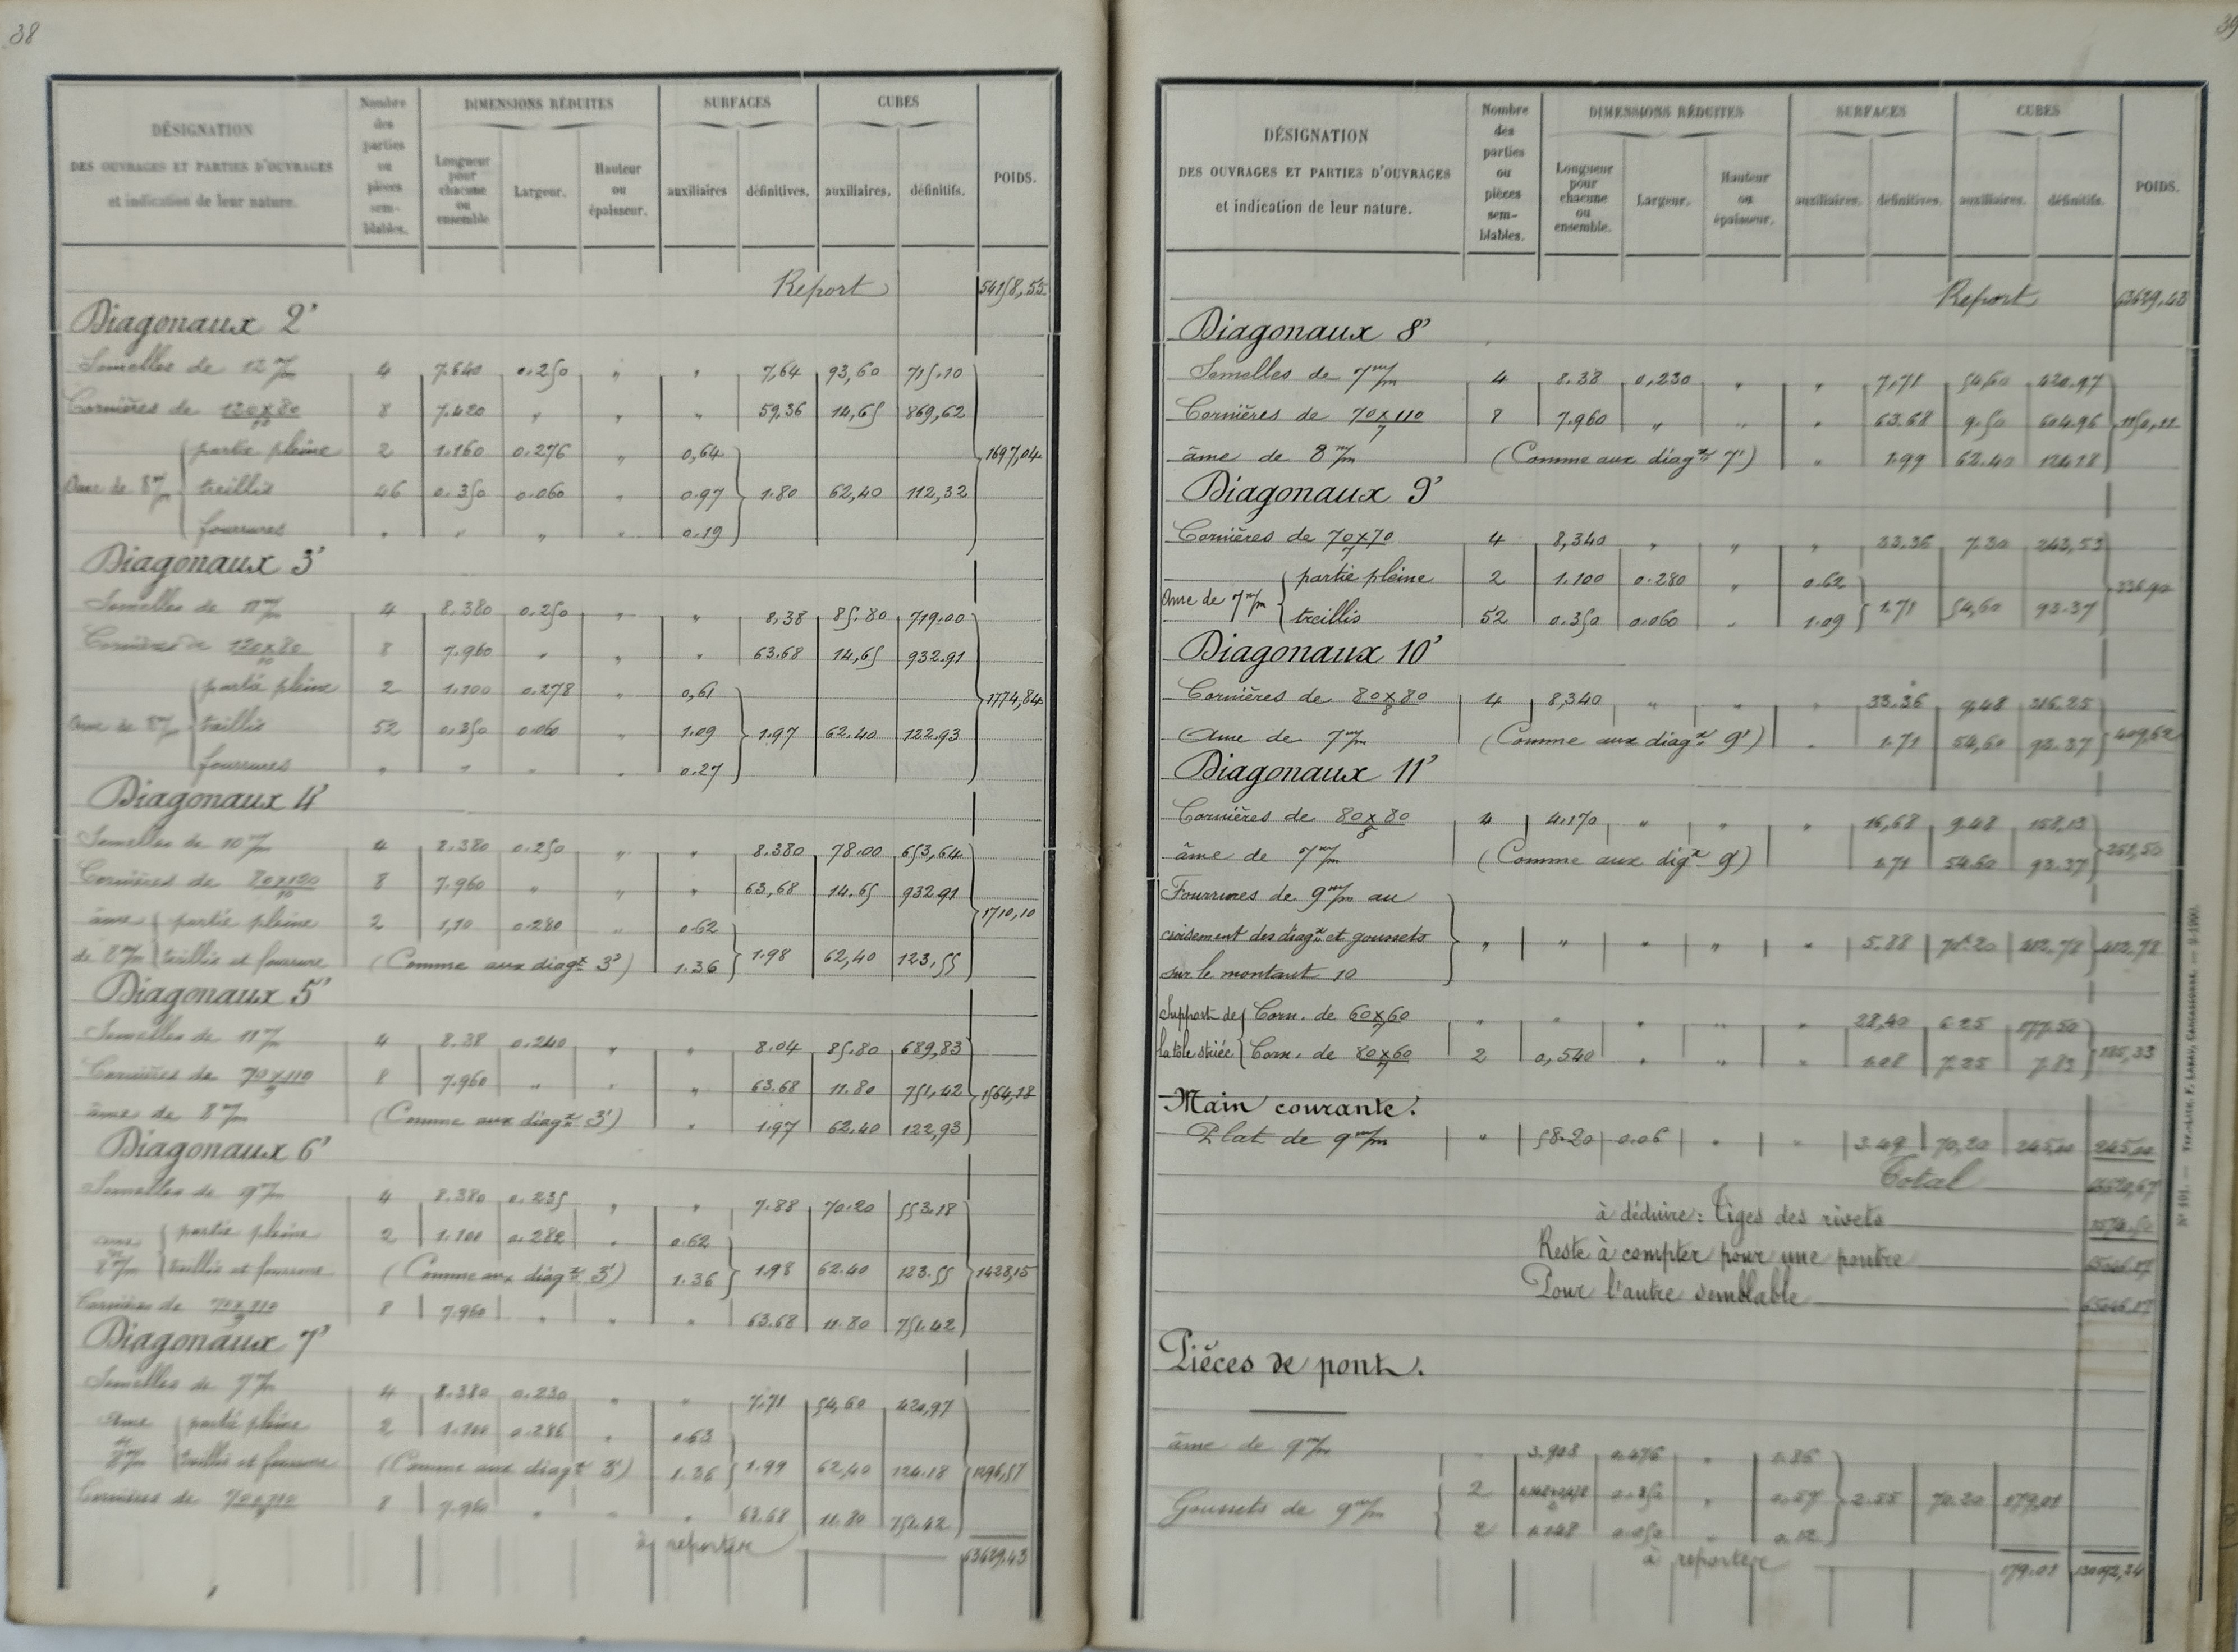 38
DÉSIGNATION
DES OUVRAGES ET PARTIES D'OUVRAGES
et indication de leur nature.
Nombre des parties ou pièces sem-blables.
DIMENSIONS RÉDUITES
Longueur pour chacune ou ensemble
Largeur.
Hauteur ou épaisseur.
SURFACES
auxiliaires
définitives.
CUBES
auxiliaires.
définitifs.
POIDS.
Report 54158,55
Diagonaux 2'
Semelles de 12 m/m 4 7.640 0.250 " " 7,64 93,60 715.10
Cornières de 120x80/10 8 7.420 " " " 59,36 14,65 869,62
partie pleine 2 1.160 0.276 " 0,64 1697,04
Ame de 8 m/m treillis 46 0.350 0.060 " 0.97 1.80 62,40 112,32
fourrures " " " " 0.19
Diagonaux 3'
Semelles de 11 m/m 4 8.380 0.250 " " 8,38 85.80 719.00
Cornières de 120x80/10 8 7.960 " " " 63.68 14,65 932.91
partie pleine 2 1.100 0.278 " 0,61 1774,84
Ame de 8 m/m treillis 52 0.350 0.060 " 1.09 1.97 62.40 122.93
fourrures " " " " 0.27
Diagonaux 4'
Semelles de 10 m/m 4 8.380 0.250 " " 8.380 78.00 653,64
Cornières de 80x120/10 8 7.960 " " " 63,68 14.65 932.91
âme partie pleine 2 1,10 0.280 " 0.62 1710,10
de 8 m/m treillis et fourrure (Comme aux diagx 3') 1.36 1.98 62,40 123.55
Diagonaux 5'
Semelles de 11 m/m 4 8.38 0.240 " " 8.04 85.80 689,83
Cornières de 70x110/9 8 7.960 " " " 63.68 11.80 751,42 1564,18
âme de 8 m/m (Comme aux diagx 3') " 1.97 62.40 122,93
Diagonaux 6'
Semelles de 9 m/m 4 8.380 0.235 " " 7.88 70.20 553.18
âme partie pleine 2 1.100 0.282 " 0.62
8 m/m treillis et fourrure (Comme aux diagx 3') 1.36 1.98 62.40 123.55 1428,15
Cornières de 70x110/9 8 7.960 " " " 63.68 11.80 751.42
Diagonaux 7'
Semelles de 7 m/m 4 8.380 0.230 " " 7.71 54,60 420,97
Ame partie pleine 2 1.100 0.286 " 0.63
8 m/m treillis et fourrure (Comme aux diagx 3') 1.36 1.99 62,40 124.18 1296,57
Cornières de 70x110/9 8 7.960 " " " 63.68 11.80 751.42
à reporter 63629.43
39
DÉSIGNATION
DES OUVRAGES ET PARTIES D'OUVRAGES
et indication de leur nature.
Nombre des parties ou pièces sem-blables.
DIMENSIONS RÉDUITES
Longueur pour chacune ou ensemble.
Largeur.
Hauteur ou épaisseur.
SURFACES
auxiliaires.
définitives.
CUBES
auxiliaires.
définitifs.
POIDS.
Report 63629,43
Diagonaux 8'
Semelles de 7 m/m 4 8.38 0,230 " " 7.71 54,60 420.97
Cornières de 70x110/7 8 7.960 " " " 63.68 9.50 604.96 1150,11
âme de 8 m/m (Comme aux diagx 7') " 1.99 62.40 124.18
Diagonaux 9'
Cornières de 70x70/7 4 8,340 " " " 33,36 7.30 243,53
partie pleine 2 1.100 0.280 " 0.62 336.90
Ame de 7 m/m treillis 52 0.350 0.060 " 1.09 1.71 54,60 93.37
Diagonaux 10'
Cornières de 80x80/8 4 8,340 " " " 33.36 9,48 316.25
Ame de 7 m/m (Comme aux diagx 9') " 1.71 54,60 93.37 409,62
Diagonaux 11'
Cornières de 80x80/8 4 4.170 " " " 16,68 9.48 158,13
âme de 7 m/m (Comme aux digx 9') 1.71 54.60 93.37 251,50
Fourrures de 9 m/m au
croisement des diagx et goussets " " " " " 5.88 70.20 412.78 412.78
sur le montant 10
Support de Corn. de 60x60/7 " " " " " 28,40 6.25 177.50
la tôle striée Corn. de 80x60/7 2 0,540 " " " 1.08 7.25 7.83 185,33
Main courante.
Plat de 9 m/m " 58.20 0.06 " " 3.49 70,20 245,00 245,00
Total 66620,67
à déduire: Tiges des rivets 1574.50
Reste à compter pour une poutre 65046.17
Pour l'autre semblable 65046.17
Pièces de pont.
âme de 9 m/m 3.908 0.476 " 1.86
2 0.350 " 0.57 2.55 70.20 179,01
Goussets de 9 m/m
2 1.148 0.050 " 0.12
à reporter 179.01 130092,34